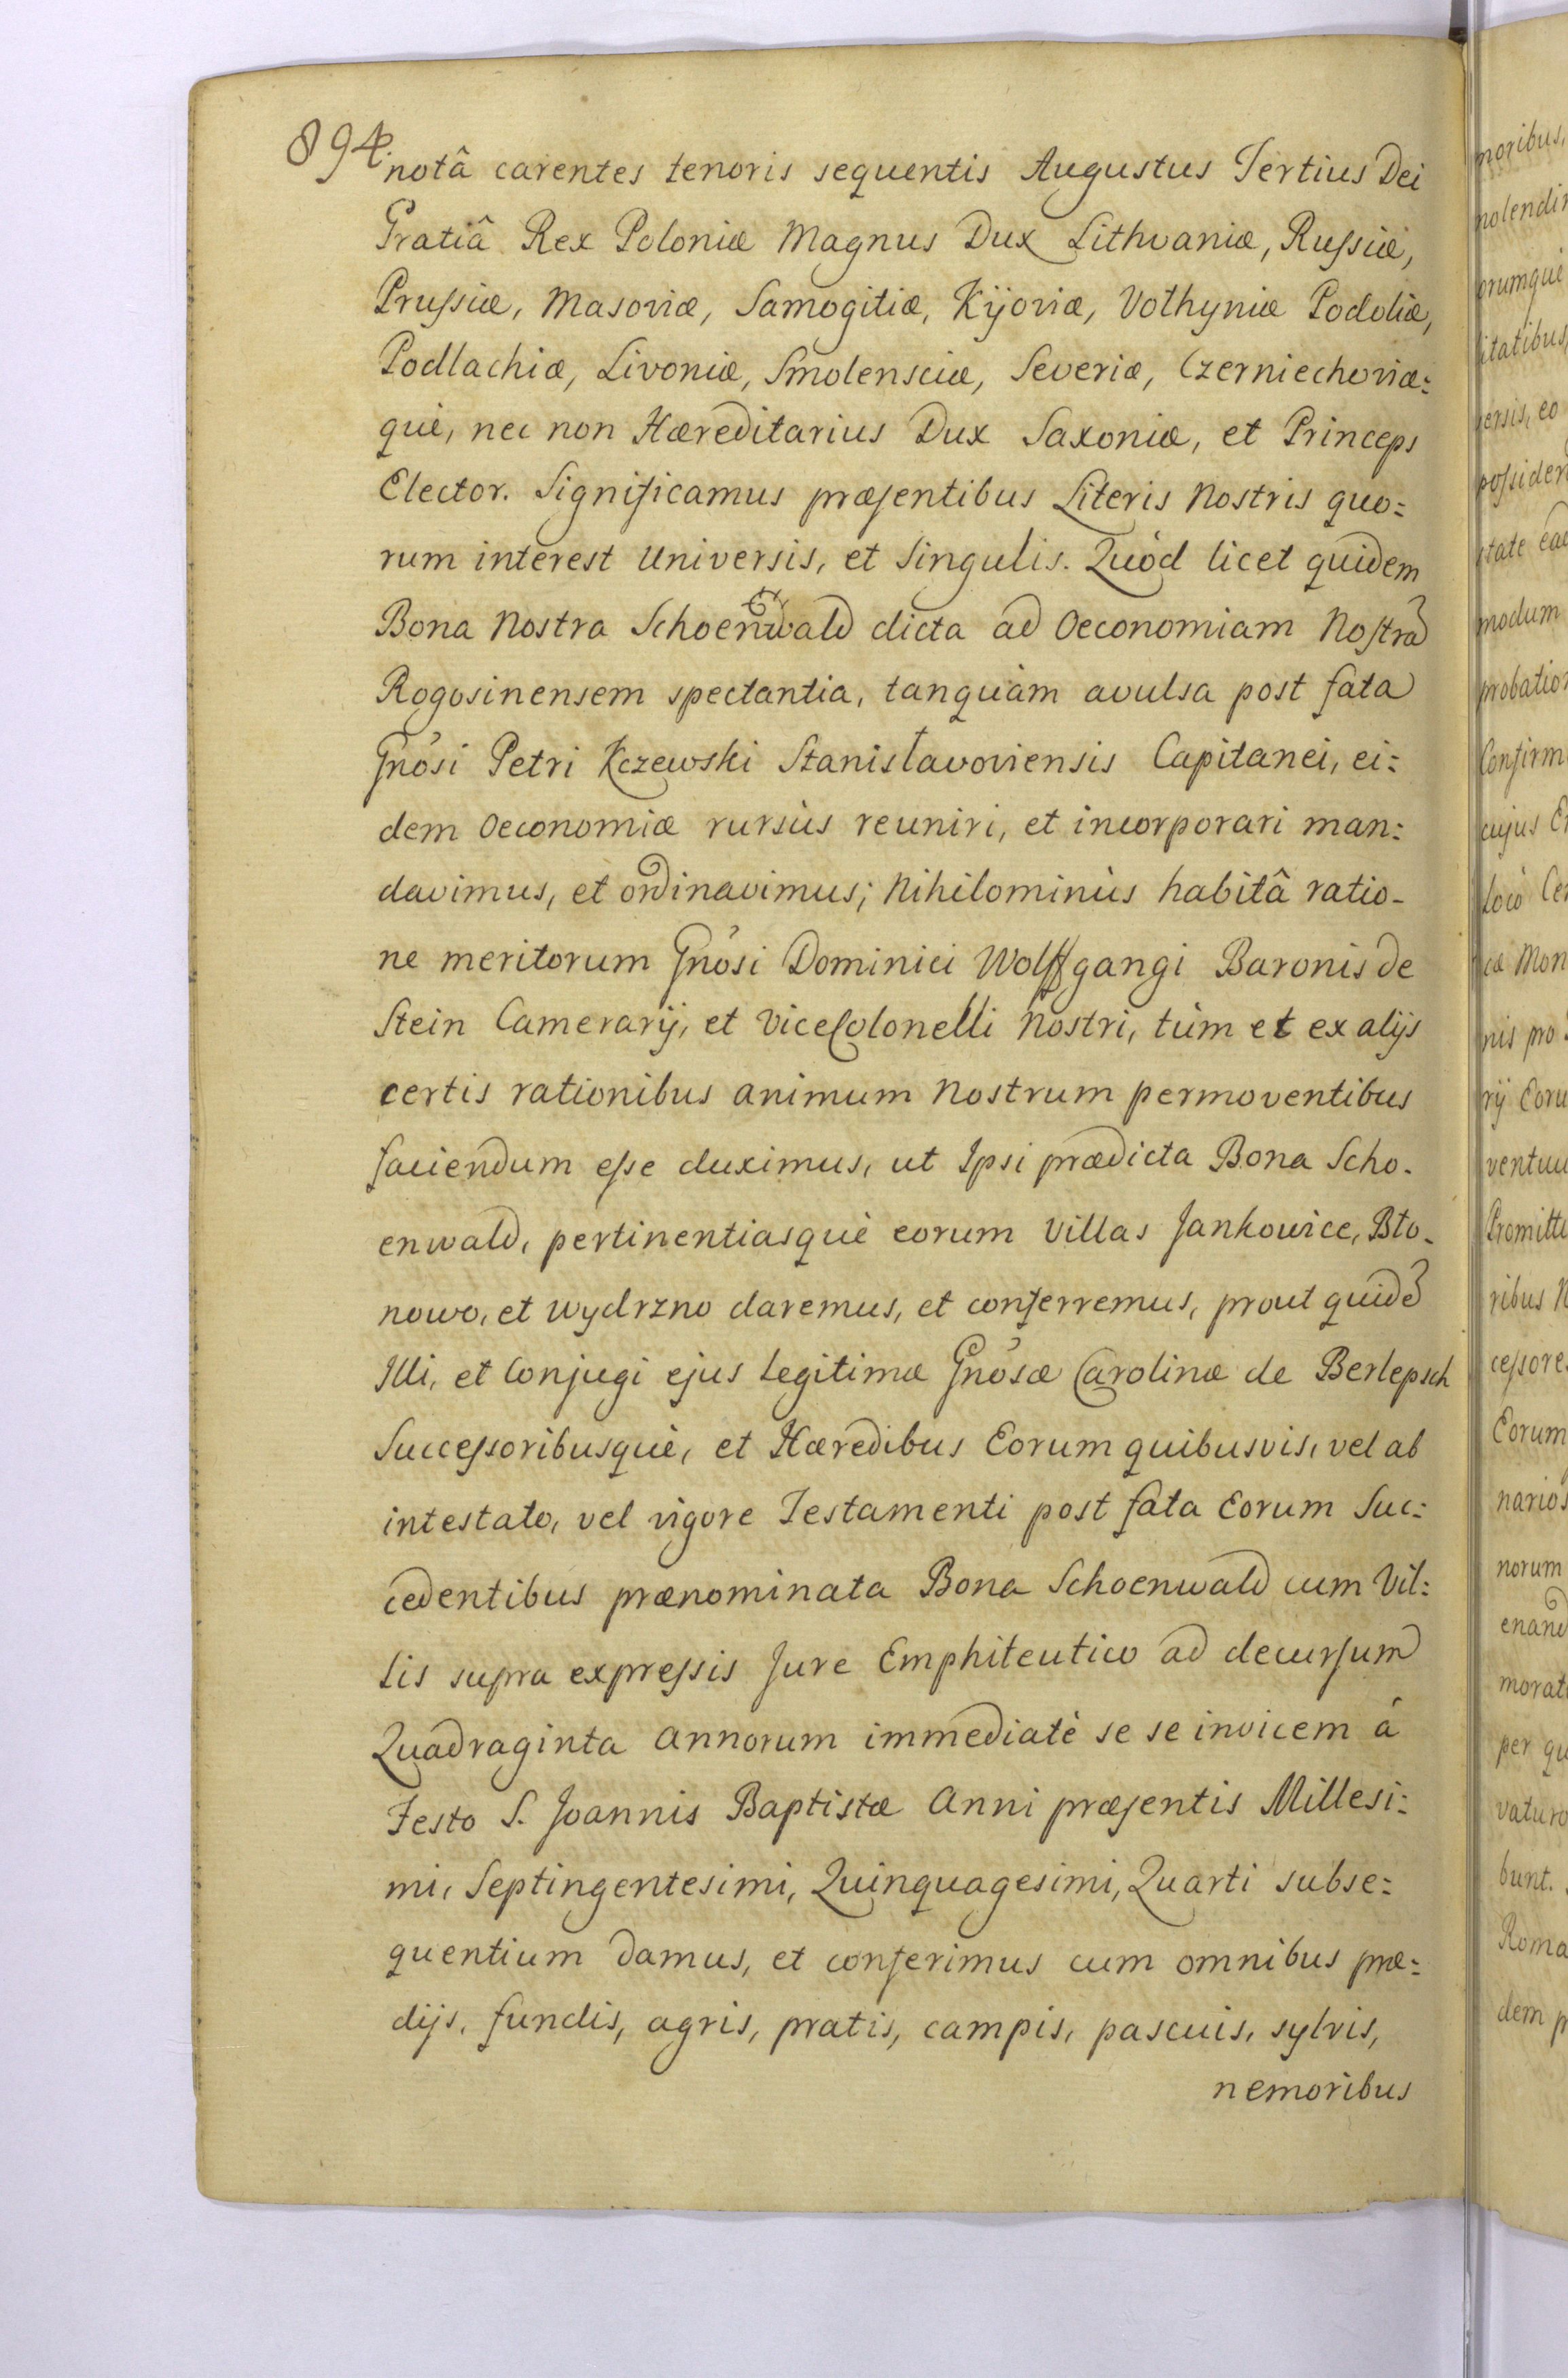 894.
notâ carentes tenoris sequentis Augustus Tertius Dei
Gratiâ Rex Poloniæ Magnus Dux Lithvaniæ, Russiæ,
Prussiæ, Masoviæ, Samogitiæ, Kijoviæ, Volhyniæ Podoliæ,
Podlachiæ, Livoniæ, Smolensciæ, Severiæ, Czerniechoviæ:
què, nec non Hæreditarius Dux Saxoniæ, et Princeps
Elector. Significamus præsentibus Literis Nostris quo:
rum interest Universis, et Singulis. Quòd licet quidem
Bona Nostra Schoenwald dicta ad Oeconomiam Nostrã
Rogosinensem spectantia, tanquàm avulsa post fata
Gnosi Petri Kczewski Stanisławoviensis Capitanei, ei:
dem Oeconomiæ rursùs reuniri, et incorporari man:
davimus, et ordinavimus; Nihilominùs habitâ ratio-
ne meritorum Gnosi Dominici Wolffgangi Baronis de
Stein Camerarij, et ViceColonelli Nostri, tùm et ex alijs
certis rationibus animum Nostrum permoventibus
faciendum esse duximus, ut Ipsi prædicta Bona Scho-
enwald, pertinentiasquè eorum Villas Jankowice, Bło-
nowo, et Wydrzno daremus, et conferremus, prout quidẽ
Illi, et Conjugi ejus Legitimæ Gnosæ Carolinæ de Berlepsch
Successoribusquè, et Hæredibus Eorum quibusvis, vel ab
intestato, vel vigore Testamenti post fata Eorum Suc:
cedentibus prænominata Bona Schoenwald cum Vil:
lis supra expressis Jure Emphiteutico ad decursum
Quadraginta Annorum immediatè se se invicem á
Festo S. Joannis Baptistæ Anni præsentis Millesi:
mi, Septingentesimi, Quinquagesimi, Quarti subse:
quentium damus, et conferimus cum omnibus præ:
dijs, fundis, agris, pratis, campis, pascuis, sylvis,
nemoribus